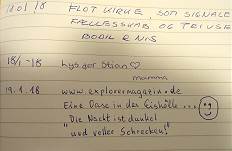 18/01/18 FLOT KIRKE, SOM SIGNALE
FÆLLESSKAB OG TRIVSE
BODIL & NIS
18/1-18 hygger Stian♡
mamma
19.1.18 www.explorermagazin.de
Eine Oase in der Eishölle...
Die Nacht ist dunkel
"und voller Schrecken!"